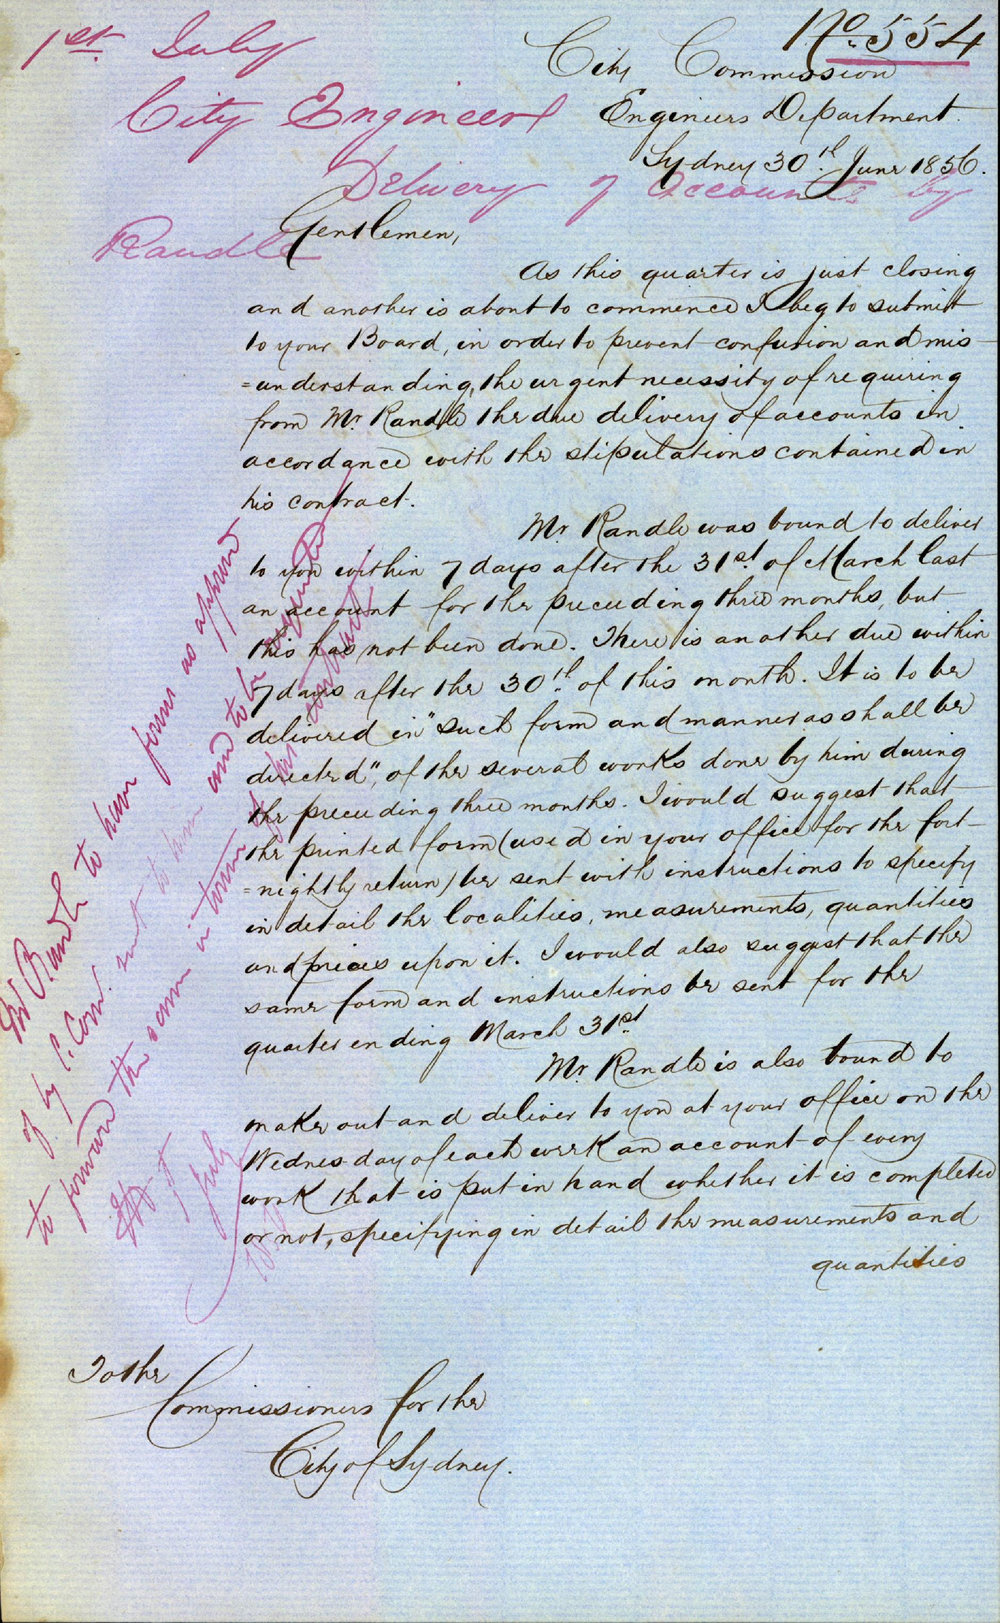 No. 554
1st. July
City Engineer
Delivery of Accounts by
Randle
City Commission
Engineers Department.
Sydney 30th. June 1856.
Gentlemen,
As this quarter is just closing
and another is about to commence I beg to submit
to your Board, in order to prevent confusion and mis-
=understanding, the urgent necessity of requiring
from Mr. Randle the due delivery of accounts in
accordance with the stipulations contained in
his contract.
Mr. Randle was bound to deliver
to you within 7 days after the 31st. of March last
an account for the preceeding three months, but
this has not been done. There is another due within
7 days after the 30th. of this month. It is to be
delivered in "such form and manner as shall be
directed", of the several works done by him during
the preceeding three months. I would suggest that
the printed form (used in your office for the fort-
=nightly return) be sent with instructions to specify
in detail the localities, measurements, quantities
and prices upon it. I would also suggest that the
same form and instructions be sent for the
quarter ending March 31st.
Mr. Randle is also bound to
make out and deliver to you at your office on the
Wednesday of each week an account of every
work that is put in hand whether it is completed
or not, specifying in detail the measurements and
quantities
To the
Commissioners for the
City of Sydney.
Mr Randle to have forms as approved
of by C. Com. sent to him and to be requested
to forward the same in terms of his contract
July